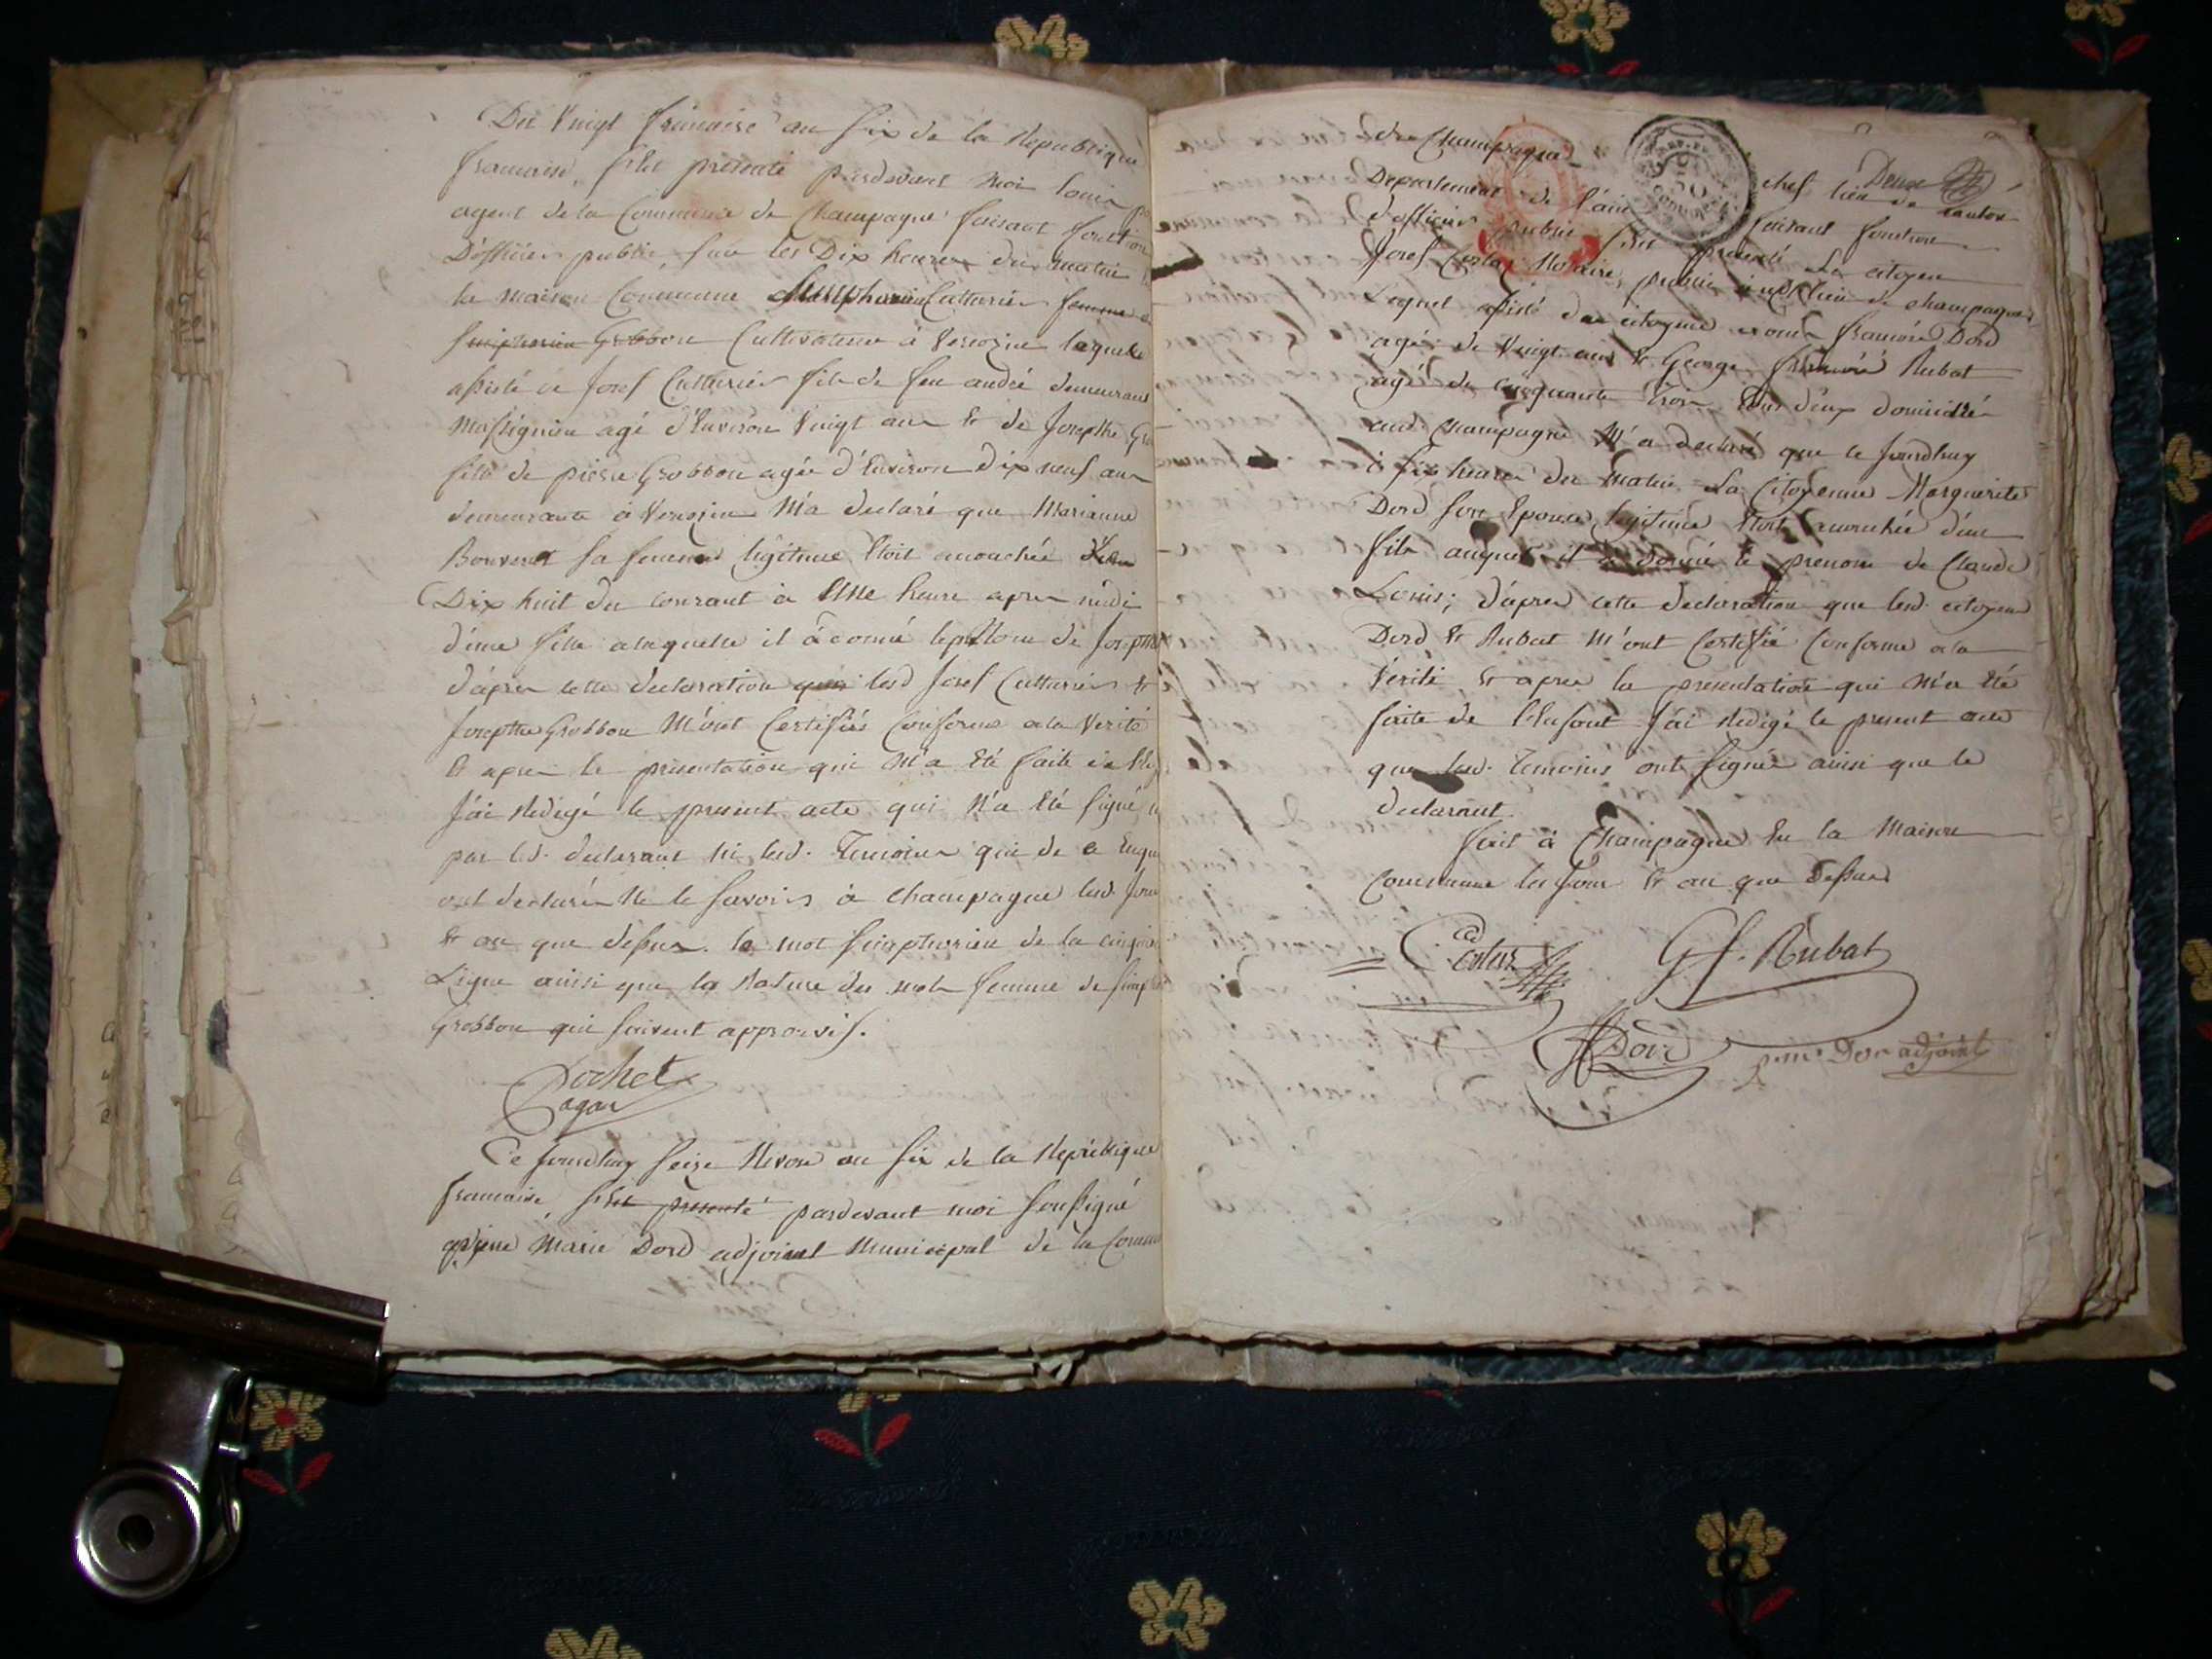 Du Vingt frimaire an six de la Republique
francaise, s'est presenté pardevant moi Louis
agent de la Commune de Champagne faisant fonction
D'officier public, sur les Dix heures du matin
la maison Commune Simphorien Cuttarier femme
Simphorien Grobbon Cultivateur à Vercozin laquelle
assisté de Josef Cuttarier fils de feu andré demeurant
Massignieu agé d'Environ Vingt ans & de Josepthe
fille de pierre Grobbon agée d'Environ dix neuf ans
demeurante à Vercozin M'a declaré que Marianne
Bouveret sa femme légitime Etoit accouchée
Dix huit du courant à Une heure apres midi
d'une fille a laquelle il à donné le prenom de Josepthe
d'apres cette declaration que lesd Josef Cuttarier &
Josepthe Grobbon M'ont Certifiés Conforme a la Verité
& apres la presentation qui M'a Eté faite de
J'ai Redigé le present acte qui N'a Eté signé
par led. declarant Ni lesd. Temoins qui de ce
ont declarés Ne le savoir à Champagne lesd. Jour
& an que dessus. le mot Simphorien de la cinquieme
Ligne ainsi que la Rature des mots femme de
Grobbon qui suivent approuvés.
Pochet
agent
Ce Jourdhuy seize Nivose an six de la Republique
francaise, s'est presenté pardevant moi soussigné
pierre Marie Dord adjoint Municipal de la
de Champagne
Deux
chef lieu de canton
Departement de l'ain faisant fonction
d'officier public s'est presenté Le citoyen
Josef Costaz Notaire public aud. lieu de champagne
Lequel assisté des citoyens francois Dord
agé de Vingt ans & George francois Rubat
agé de cinquante trois tous deux domiciliés
aud. Champagne M'a declaré que le Jourdhuy
à six heures du Matin La Citoyenne Marguerite
Dord son Epouse legitime Etoit accouchée d'un
fils auquel il a donné le prenom de Claude
Louis; d'apres cette declaration que lesd. citoyens
Dord & Rubat M'ont Certifié Conforme a la
Verité & apres la presentation qui M'a Eté
faite de l'Enfant J'ai Redigé le present acte
que lesd. Temoins ont signés ainsi que le
declarant.
fait à Champagne En la Maison
Commune les Jour & an que Dessus
Costaz Gf. Rubat
Dord p. m. Dor adjoint